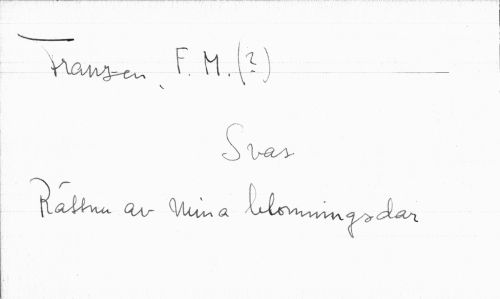 Franzen, F. M. (?)
Svar
Rättnu av mina blomningsdar